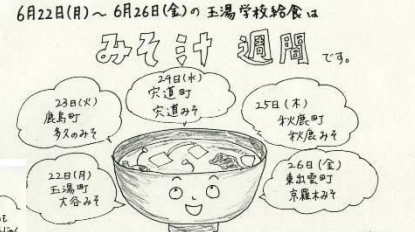 6月22日(月)～6月26日(金)の玉湯学校給食は
みそ汁週間です。
24日(水)
宍道町
宍道みそ
23日(火)
鹿島町
多久のみそ
25日(木)
秋鹿町
秋鹿みそ
22日(月)
玉湯町
大谷みそ
26日(金)
東出雲町
京羅木みそ